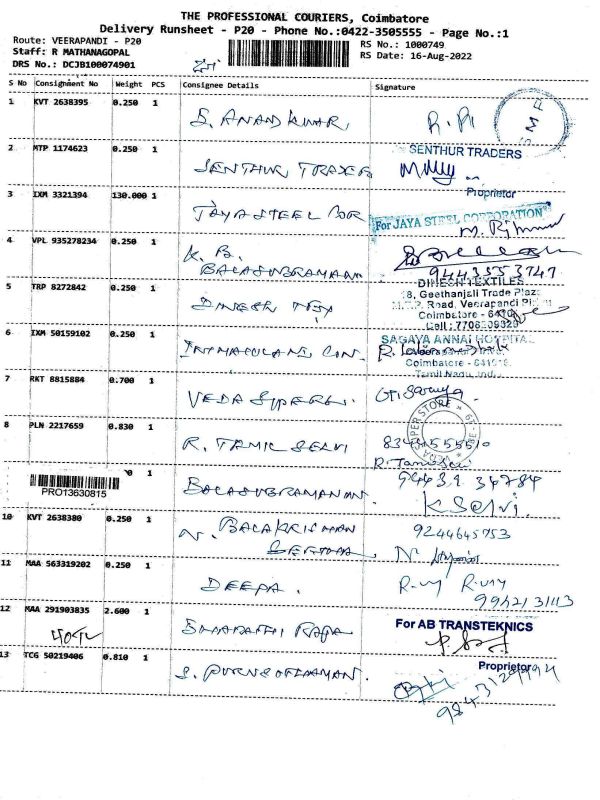 THE PROFESSIONAL COURIERS, Coimbatore
Delivery Runsheet - P20 - Phone No.:0422-3505555 - Page No.:1
Route: VEERAPANDI - P20
Staff: R MATHANAGOPAL
DRS No.: DCJB100074901
RS No.: 1000749
RS Date: 16-Aug-2022
S No Consignment No Weight PCS Consignee Details Signature
1 KVT 2638395 0.250 1 S. ANAND KUMAR
SMF
2 MTP 1174623 0.250 1 SENTHUR TRADERS
SENTHUR TRADERS
Proprietor
3 IXM 3321394 130.000 1 JAYA STEEL COR
For JAYA STEEL CORPORATION
4 VPL 935278234 0.250 1 K. B. BALASUBRAMANI
9443553747
5 TRP 8272842 0.250 1 DINESH TEX
DINESH TEXTILES
18, Geethanjali Trade Plaza
Road, Veerapandi
Coimbatore -
6 IXM 50159102 0.250 1 IMMACULANE CON.
SAGAYA ANNAI HOSPITAL
Coimbatore -
Tamil Nadu, Ind.
7 RKT 8815884 0.700 1 VEDA SUPER
8 PLN 2217659 0.830 1 R. TAMIL SELVI
SUPER STORE
8344555510
R. Tamilselvi
0 1 BALASUBRAMANIAN.
PRO13630815
94431 34784
K Selvi
10 KVT 2638380 0.250 1 N. BALAKRISHNAN
9244645753
11 MAA 563319202 0.250 1 DEEPA.
12 MAA 291903835 2.600 1 BHARATHI RAJA
For AB TRANSTEKNICS
Proprietor
13 TCG 50219406 0.810 1 S. PURUSOTHAMAN.